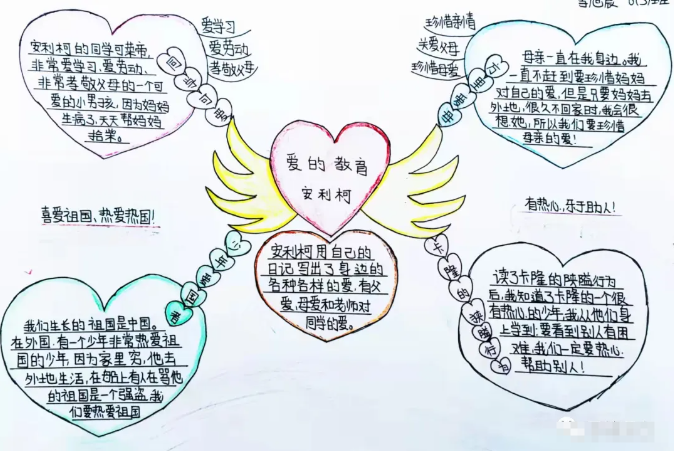 爱学习
爱劳动
孝敬父母
安利柯的同学可莱帝,
非常爱学习、爱劳动、
非常孝敬父母的一个可
爱的小男孩,因为妈妈
生病了,天天帮妈妈
拾柴。
珍惜亲情
关爱父母
珍惜母爱
母亲一直在我身边。我
一直不赶到要珍惜妈妈
对自己的爱,但是只要妈妈去
外地,很久不回家时,我会很
想她,所以我们要珍惜
母亲的爱!
爱的教育
安利柯
喜爱祖国、热爱热国!
有热心,乐于助人!
安利柯用自己的
日记写出了身边的
各种各样的爱,有父
爱,母爱和老师对
同学的爱。
少年爱国者
我们生长的祖国是中国。
在外国,有一个少年非常热爱祖
国的少年,因为家里穷,他去
外地生活,在船上有人在骂他
的祖国是一个强盗,我
们要热爱祖国
卡隆的
行
读了卡隆的
行为
后,我知道了卡隆的一个很
有热心的少年,我从他们身
上学到:要看到别人有困
难,我们一定要热心
帮助别人!